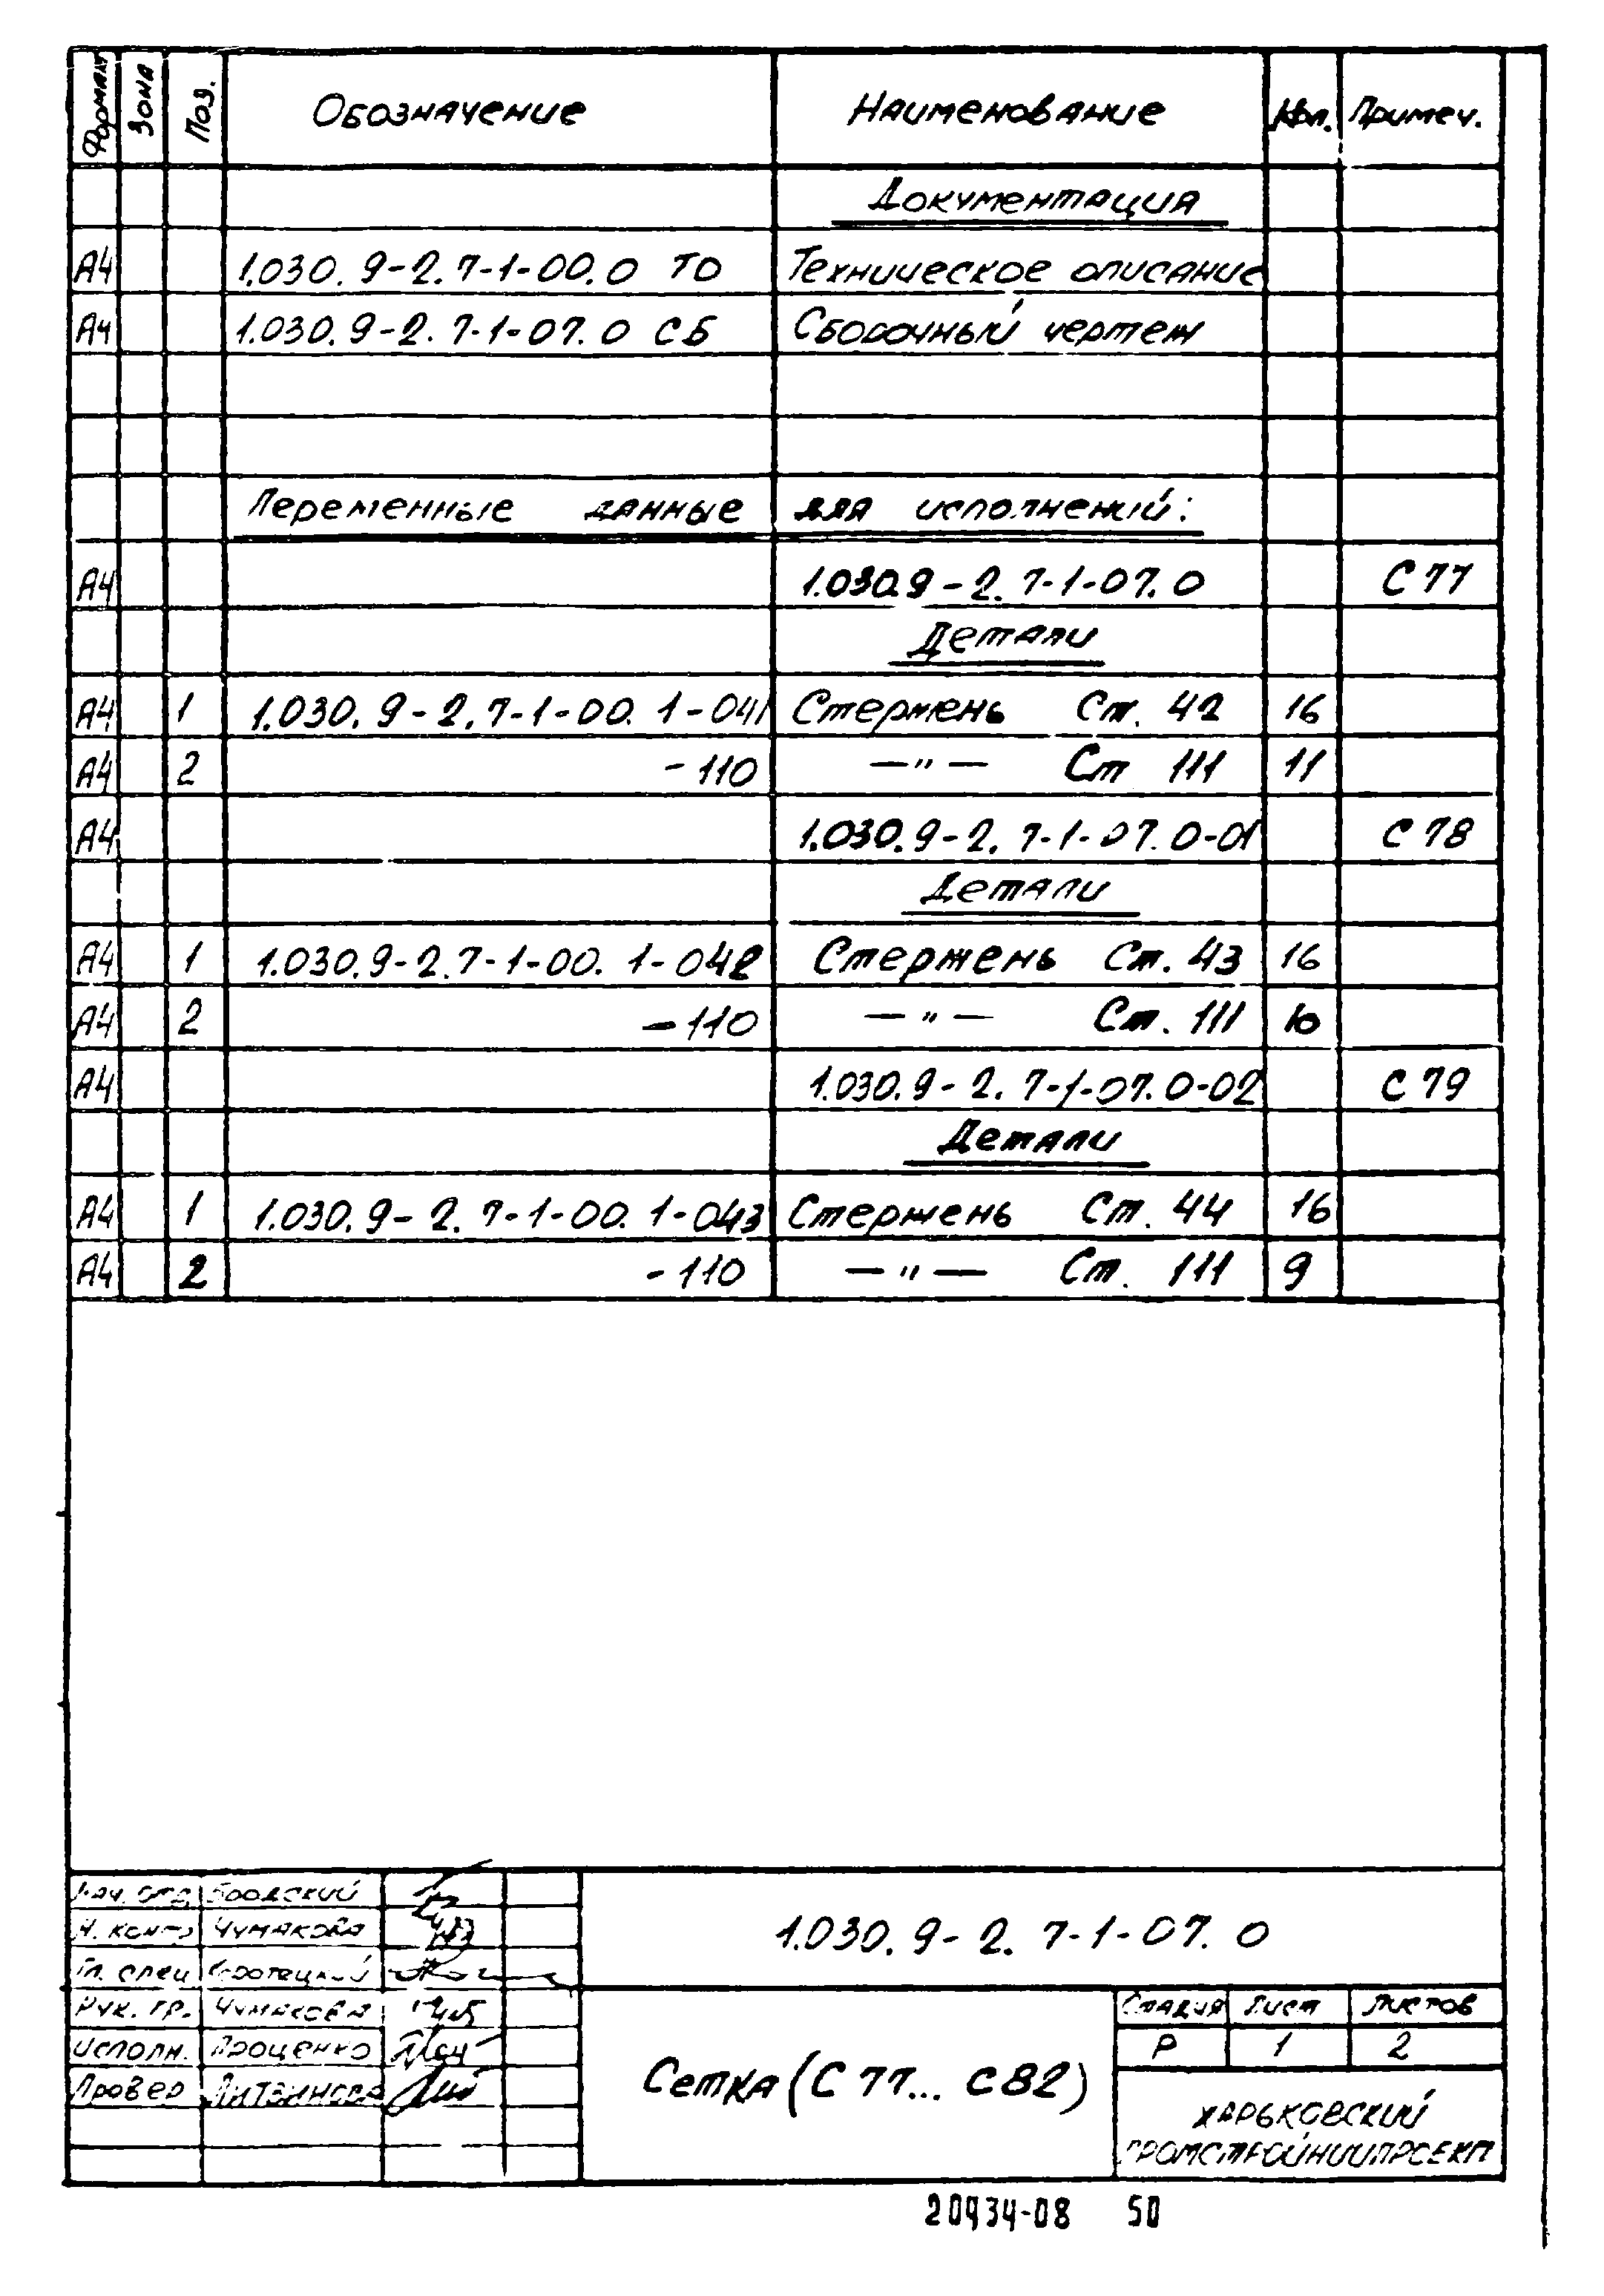 Формат Зона Поз. Обозначение Наименование Кол. Примеч.
Документация
А4 1.030.9-2.7-1-00.0 ТО Техническое описание
А4 1.030.9-2.7-1-07.0 СБ Сборочный чертеж
Переменные данные для исполнений:
А4 1.030.9-2.7-1-07.0 С 77
Детали
А4 1 1.030.9-2.7-1-00.1-041 Стержень Ст. 42 16
А4 2 -110 —"— Ст 111 11
А4 1.030.9-2.7-1-07.0-01 С 78
Детали
А4 1 1.030.9-2.7-1-00.1-042 Стержень Ст. 43 16
А4 2 -110 —"— Ст. 111 10
А4 1.030.9-2.7-1-07.0-02 С 79
Детали
А4 1 1.030.9-2.7-1-00.1-043 Стержень Ст. 44 16
А4 2 -110 —"— Ст. 111 9
Нач. отд Бродский
Н. контр Чумакова
Гл. спец Коротецкий
Рук. гр. Чумакова
Исполн. Проценко
Провер Литвинова
1.030.9-2.7-1-07.0
Сетка (С 77... С 82)
Стадия Лист Листов
Р 1 2
Харьковский
Промстройниипроект
20434-08 50